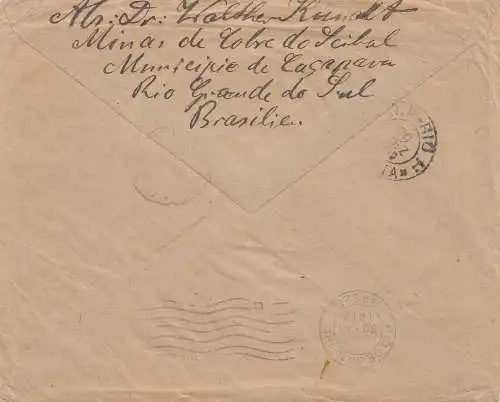 Abs: Dr: Walther Kundt
Minas de Cobre do Seibal
Municipio de Caçapava
Rio Grande do Sul
Brasilien